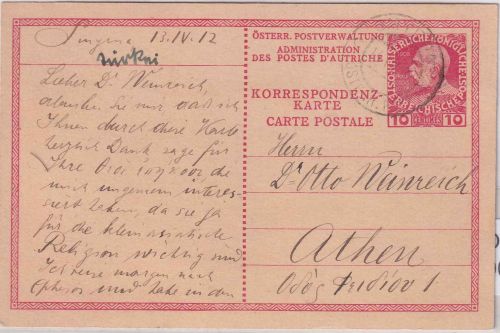 Smyrna 13.IV.12
Türkei
Lieber Dr Weinreich,
erlauben Sie mir daß ich
Ihnen durch diese Karte
herzlich Dank sage für
Ihre die
mich ungemein interes-
siert haben, da sie ja
für die kleinasiatische
Religion wichtig sind
Ich reise morgen nach
Ephesos und habe in den
ÖSTERR. POSTVERWALTUNG
ADMINISTRATION
DES POSTES D'AUTRICHE
KORRESPONDENZ-
KARTE
CARTE POSTALE
10 CENTIMES 10
Herrn
Dr Otto Weinreich
Athen
Οδὸς Φειδίου 1